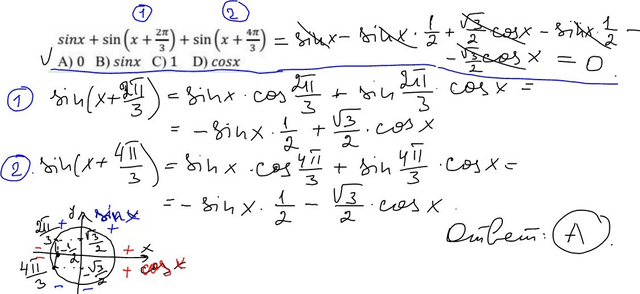 ① ②
√ sinx + sin(x + 2π/3) + sin(x + 4π/3) = sinx - sinx · 1/2 + √3/2 cosx - sinx · 1/2 -
- √3/2 cosx = 0.
A) 0 B) sinx C) 1 D) cosx
① sin(x + 2π/3) = sinx · cos 2π/3 + sin 2π/3 · cosx =
= - sinx · 1/2 + √3/2 · cosx
② sin(x + 4π/3) = sinx · cos 4π/3 + sin 4π/3 · cosx =
= - sinx · 1/2 - √3/2 · cosx.
Ответ: A.
y sinx
2π/3 + + √3/2
- -1/2 + x
4π/3 - -√3/2 + cosx
- -